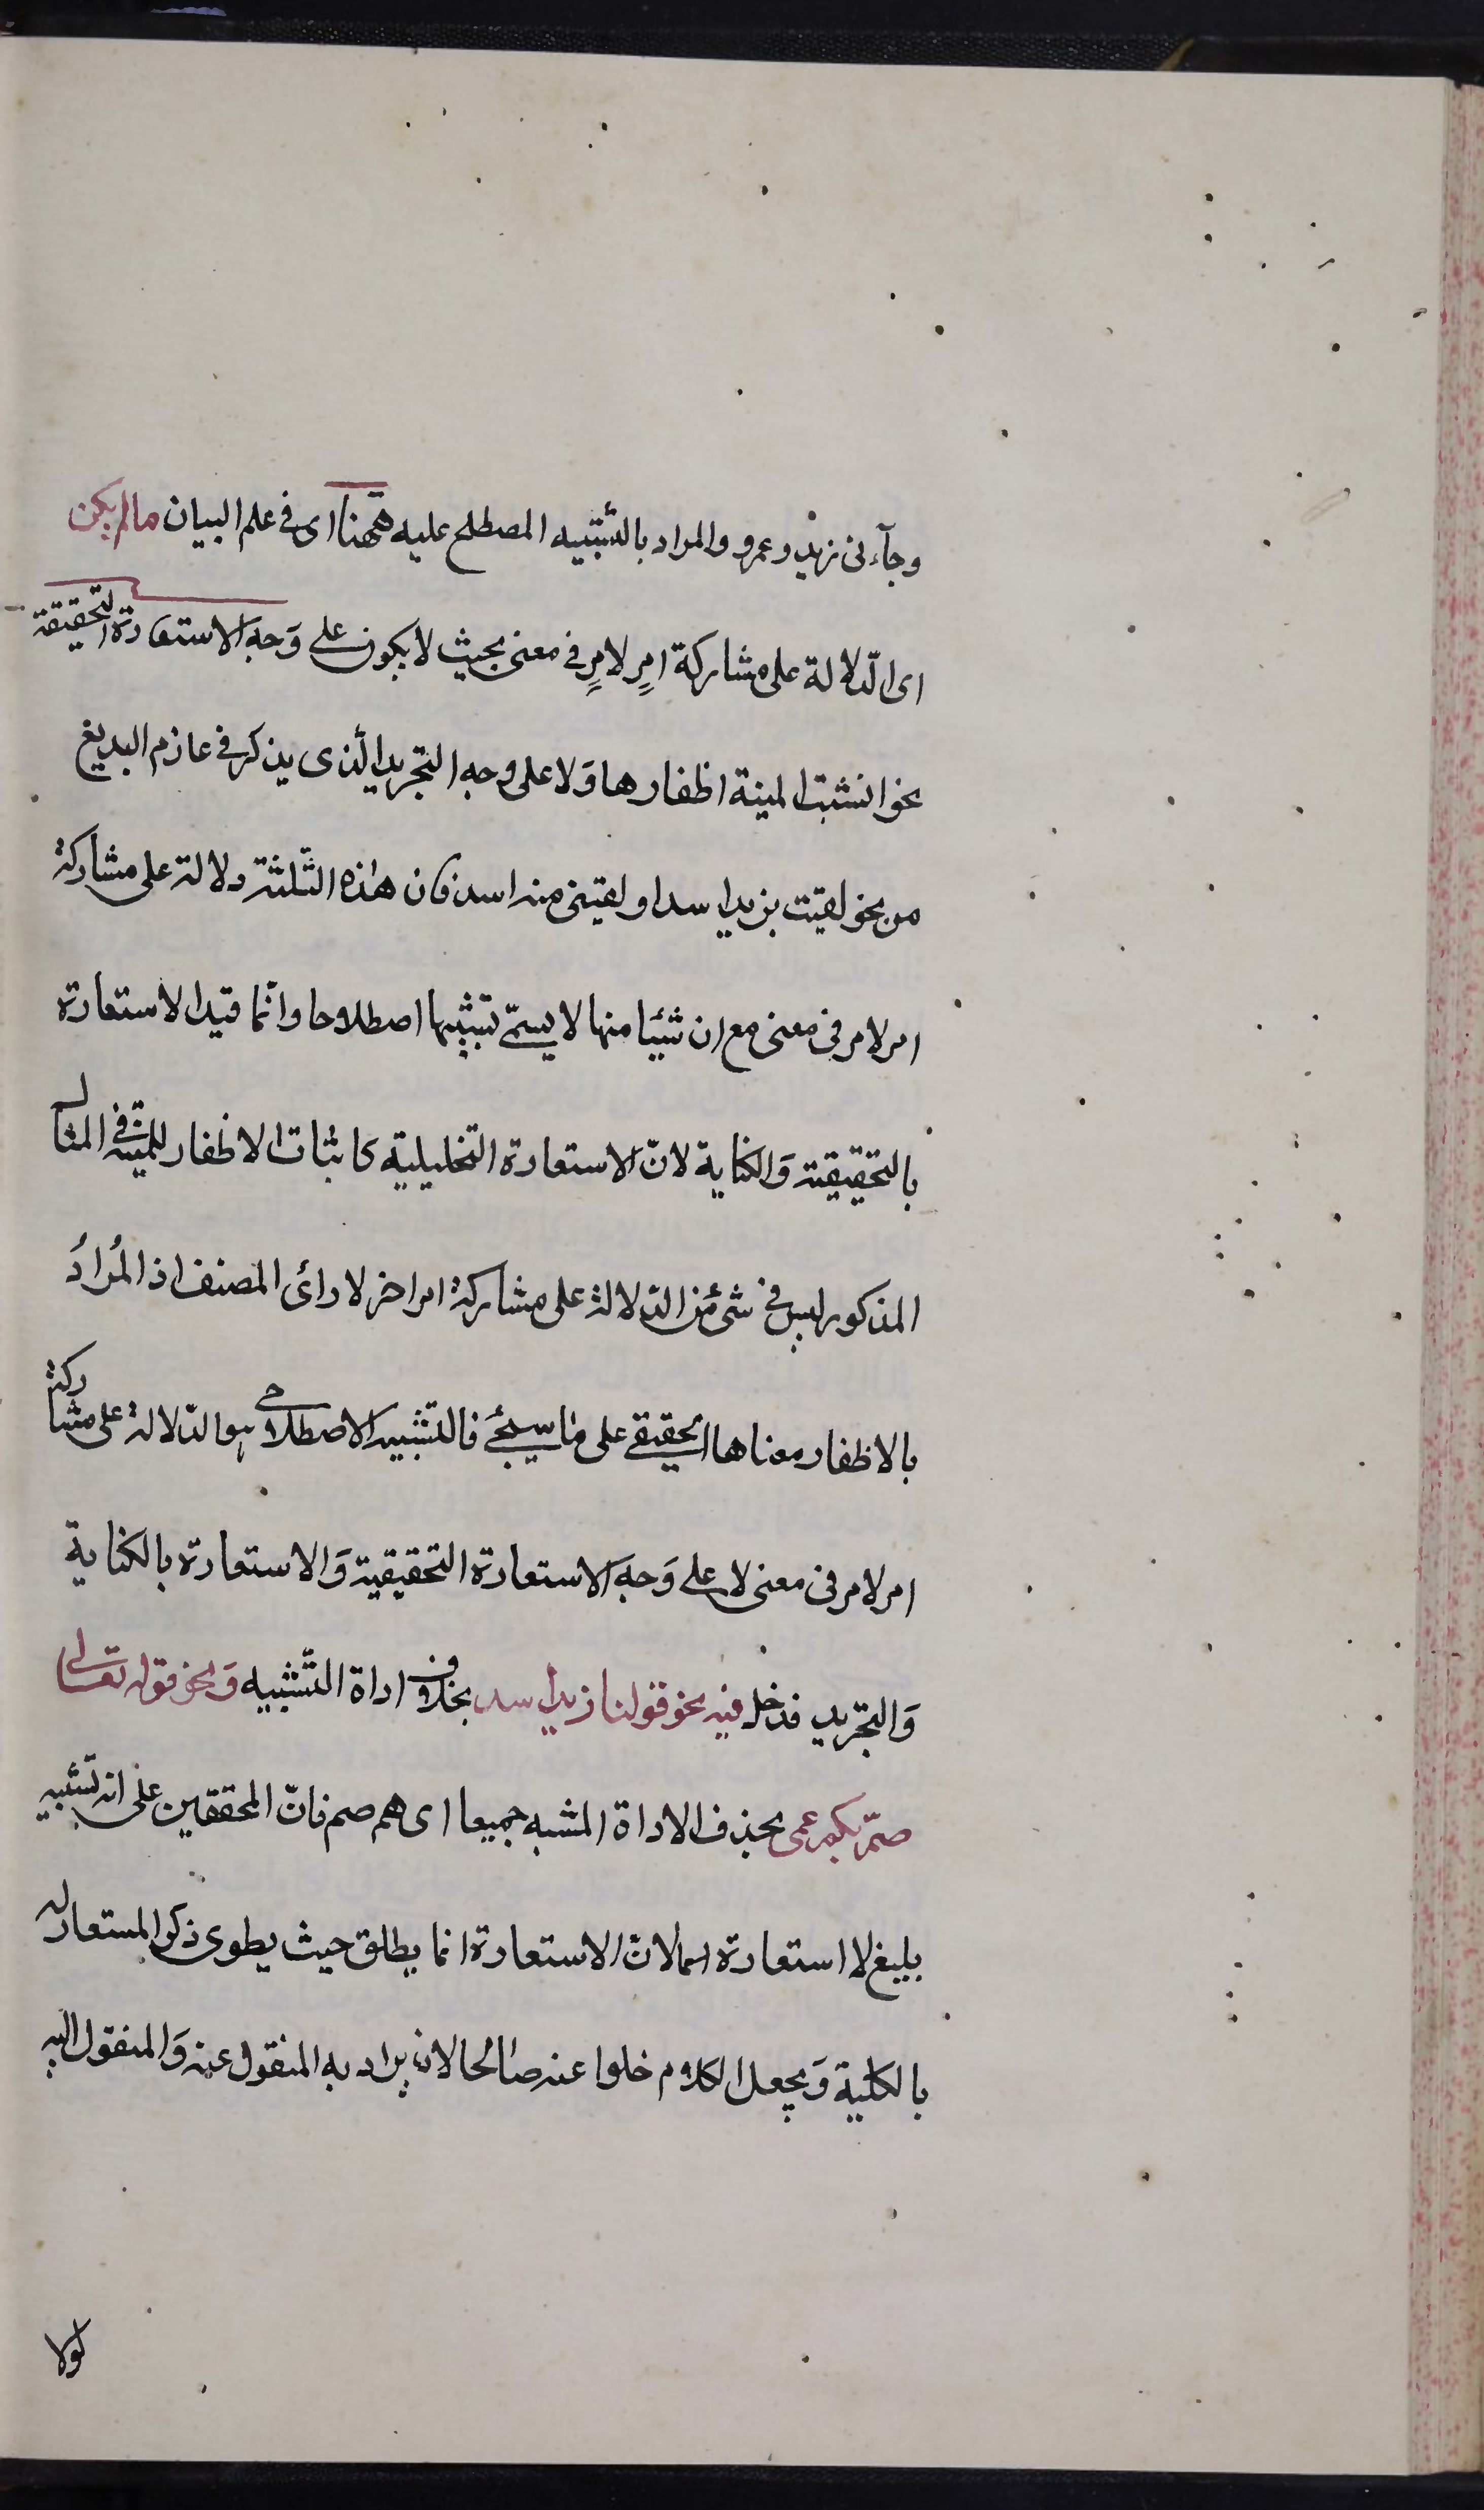 وجآءنى زيد وعمرو والمراد بالتشبيه المصطلح عليه ههنا اى فى علم البيان مالم يكن
اى الدّلالة على مشاركة امرٍ لامرٍ فى معنى بحيث لا يكون على وَجه الاستعارة التحقيقة
نحو انشبت المنية اظفارها وَلا على وجه التجريد الّذى يذكر فى علم البديع
من نحو لقيت بزيد اسدا ولقيتنى منه اسد فان هذه الثّلثة دلالة على مشاركة
امر لامر فى معنى مع ان شيئا منها لا يسمّى تشبيها اصطلاحا وانّما قيد الاستعارة
بالتحقيقية وَالكناية لانّ الاستعارة التخليلية كاثبات الاظفار للمنية فى المثال
المذكور ليس فى شئ من الدّلالة على مشاركة امر اخر لا رائ المصنف اذ المُرادُ
بالاظفار معناها الحقيقى على ما سيجئ فالتّشبيه الاصطلاحى هو الدّلالة على مشاركة
امر لامر فى معنى لا على وَجه الاستعارة التحقيقية وَالاستعارة بالكناية
وَالتجريد فدخل فيه نحو قولنا زيد اسد بحذف اداة التّشبيه وَنحو قوله تعالى
صمّ بكم عمى بحذف الاداة المشبه جميعا اى هم صم فانّ المحققين على انه تشبيه
بليغ لا استعارة لانّ الاستعارة انما يطلق حيث يطوى ذكر المستعار له
بالكلية وَيجعل الكلام خلوا عنه صالحا لان يراد به المنقول عنه وَالمنقول اليه
لولا